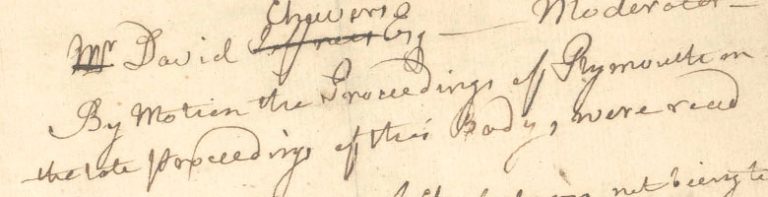 Cheevers
Mr David Jeffries Esq — Moderator —
By Motion the Proceedings of Plymouth on
the late proceedings of this Body, were read
not being te